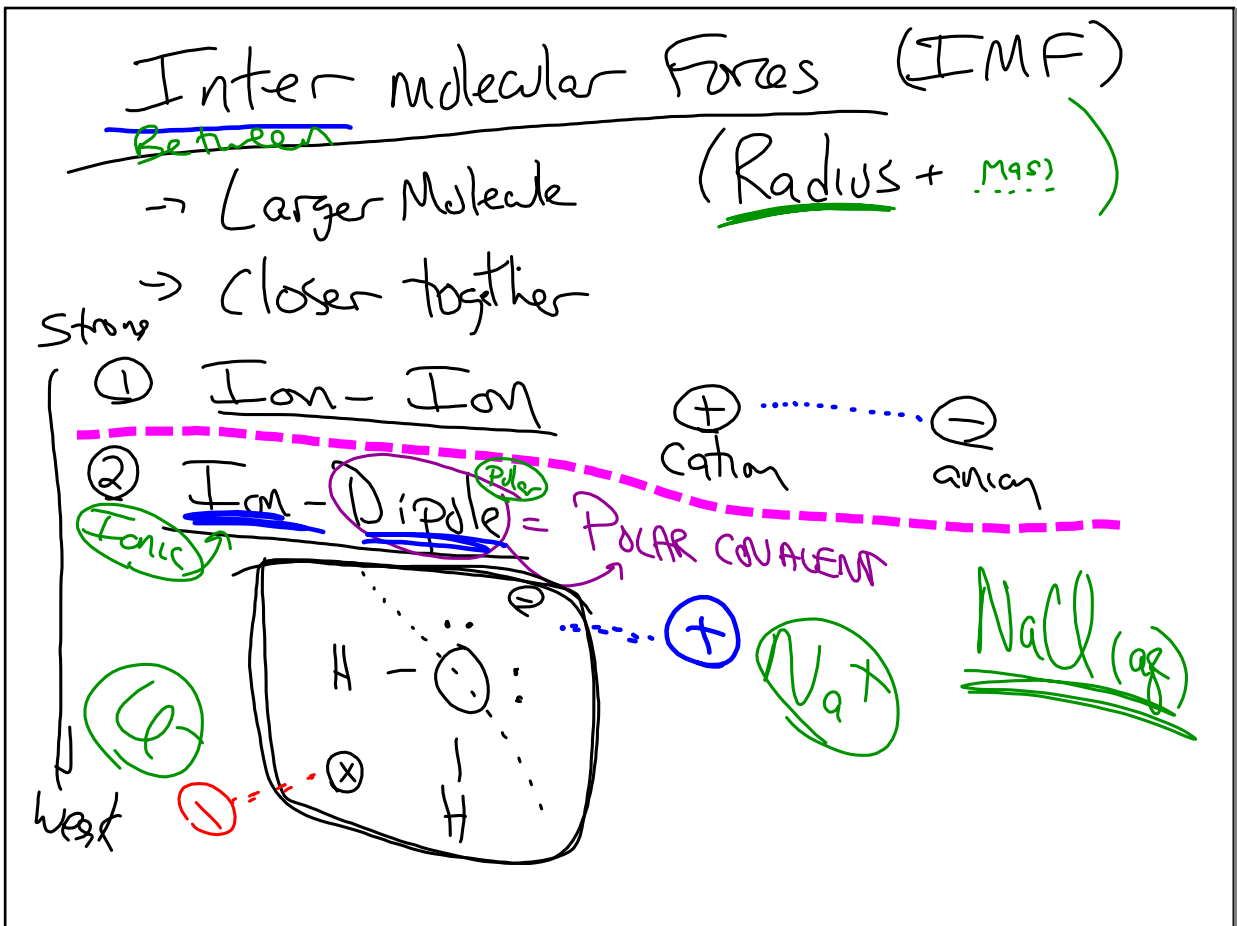 Inter molecular Forces (IMF)
Between
(Radius + Mass)
→ Larger Molecule
→ Closer together
Strong
① Ion - Ion
+ −
cation anion
② Ion - Dipole = POLAR COVALENT
Polar
Ionic
−
H - O
+ Na+ NaCl(aq)
Cl-
−
+
H
Weak